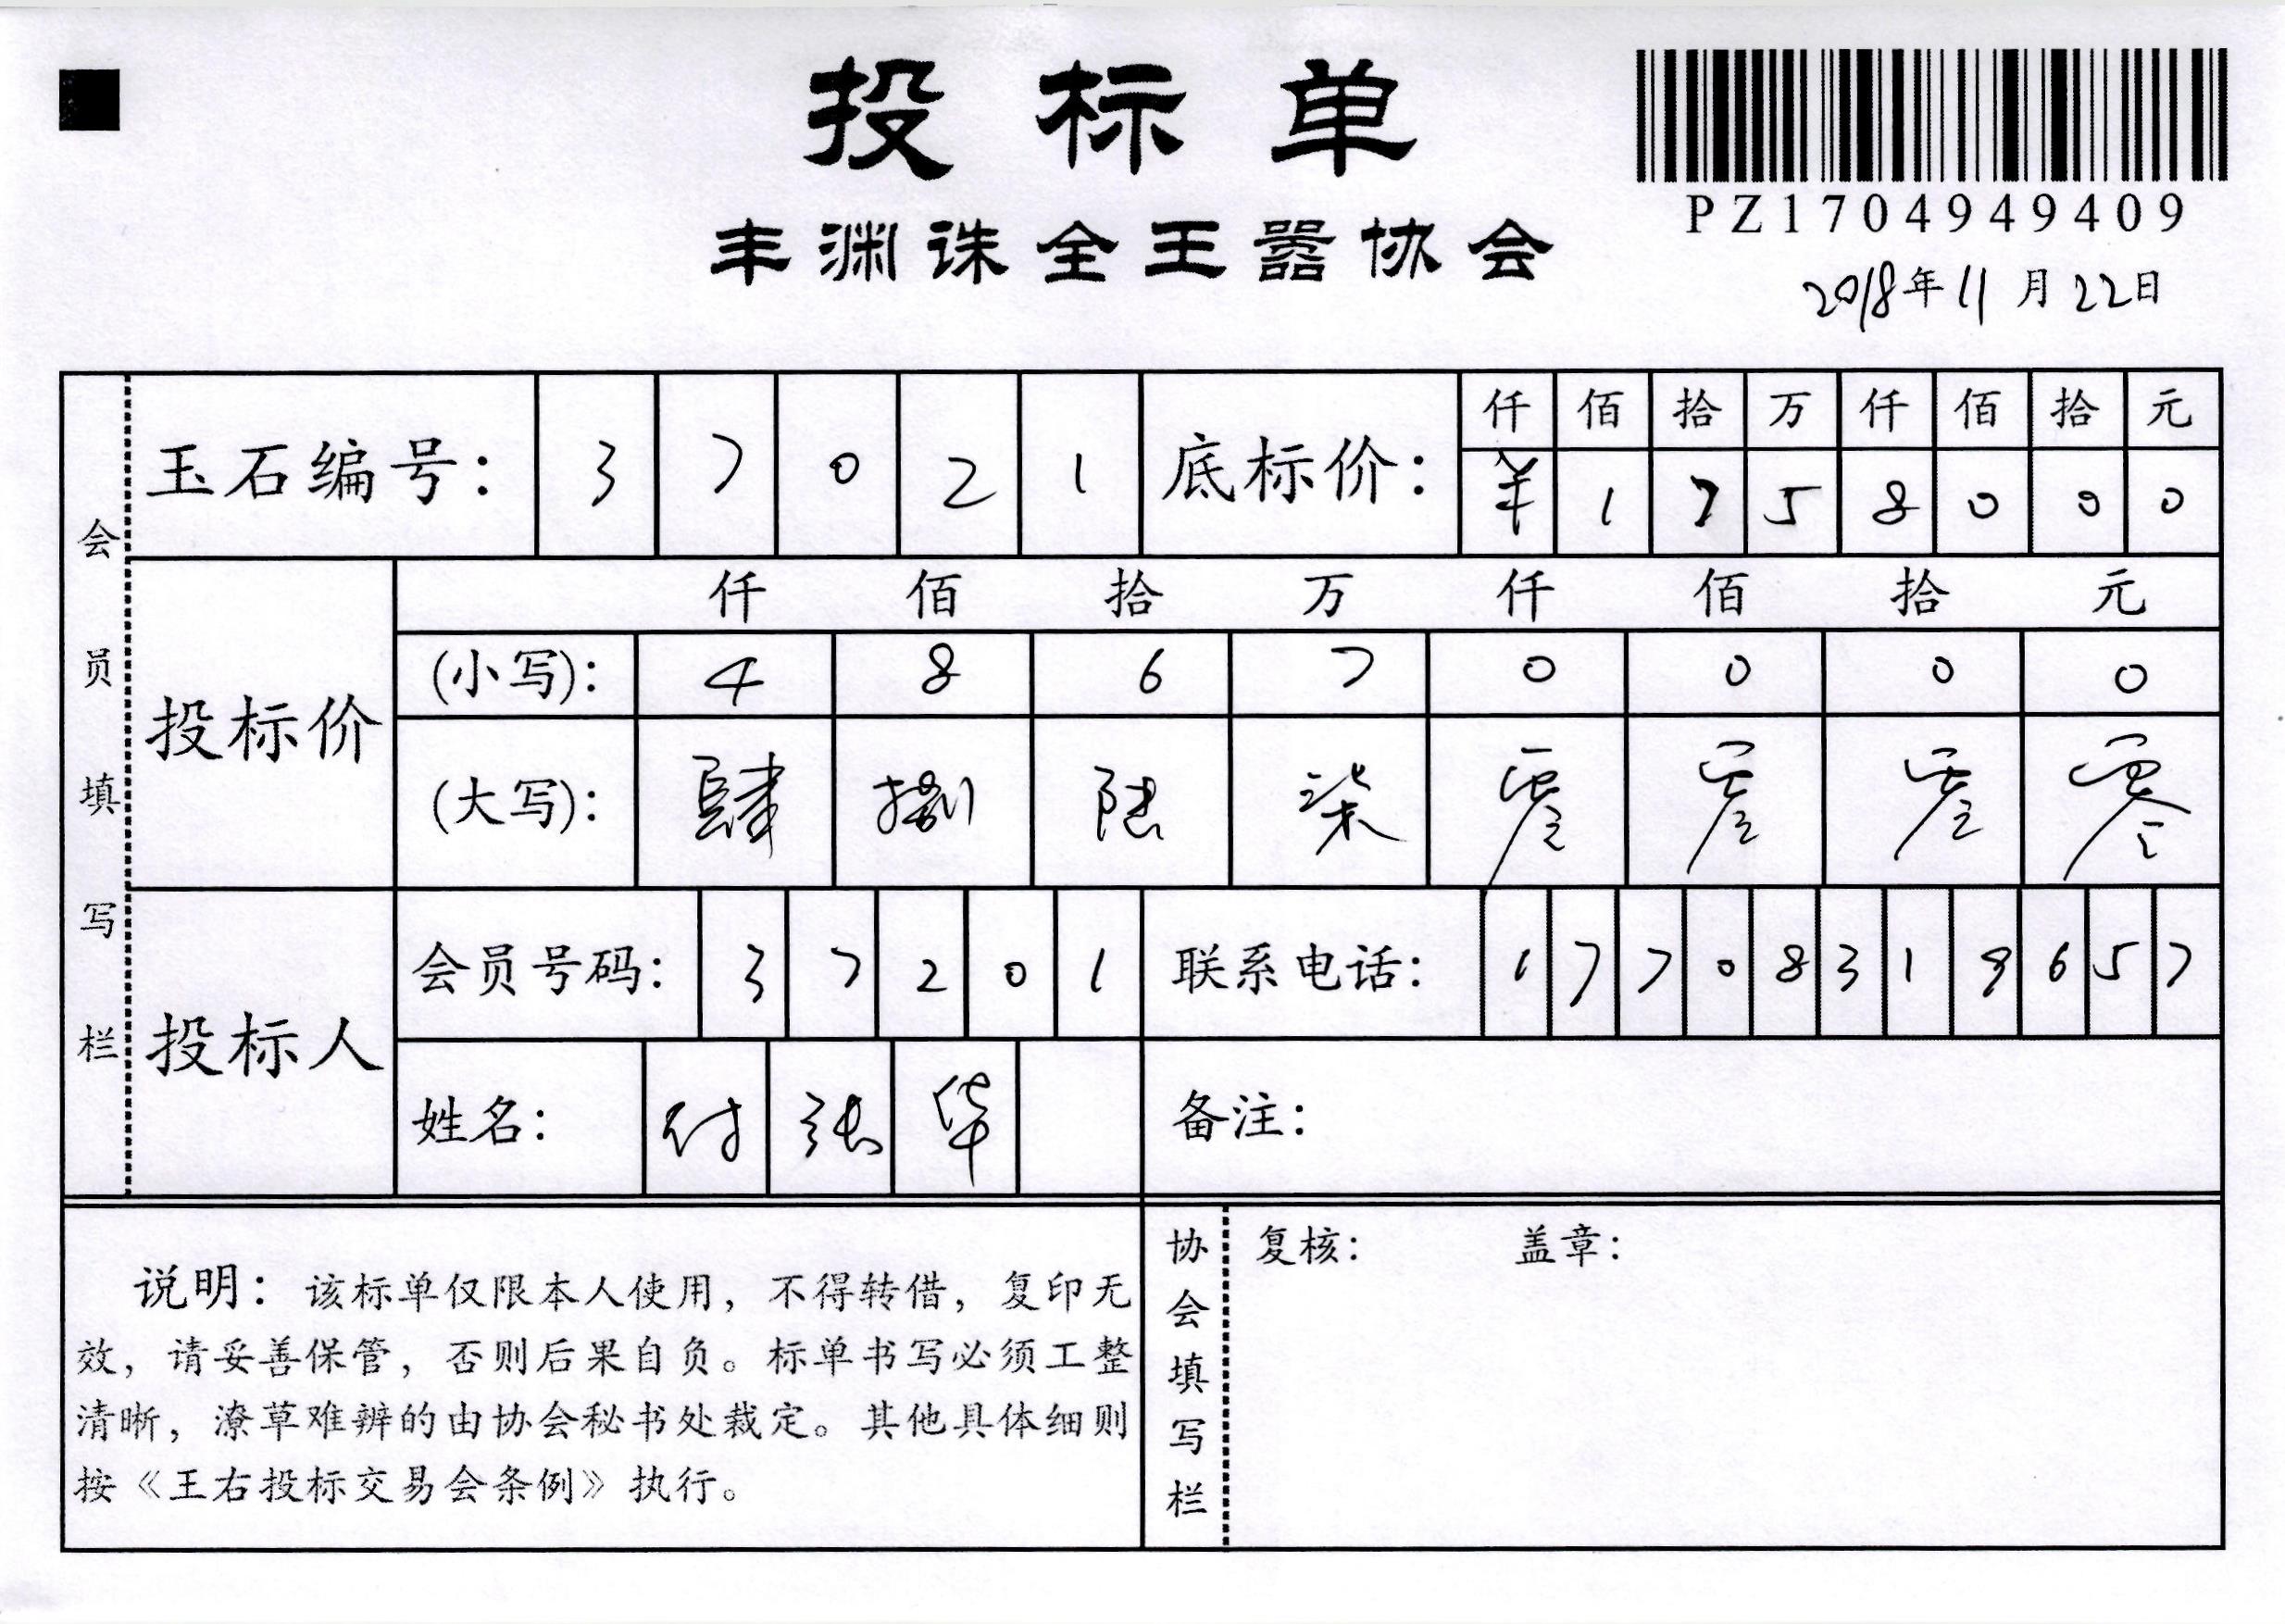 投标单
PZ1704949409
丰渊诛全王嚣协会
2018年11月22日
会员填写栏
玉石编号: 3 7 0 2 1
底标价: 仟 佰 拾 万 仟 佰 拾 元
¥ 1 7 5 8 0 0 0
投标价
仟 佰 拾 万 仟 佰 拾 元
(小写): 4 8 6 7 0 0 0 0
(大写): 肆 捌 陆 柒 零 零 零 零
投标人
会员号码: 3 7 2 0 1
联系电话: 1 7 7 0 8 3 1 9 6 5 7
姓名: 付 张 华
备注:
说明: 该标单仅限本人使用，不得转借，复印无
效，请妥善保管，否则后果自负。标单书写必须工整
清晰，潦草难辨的由协会秘书处裁定。其他具体细则
按《王右投标交易会条例》执行。
协会填写栏
复核: 盖章: